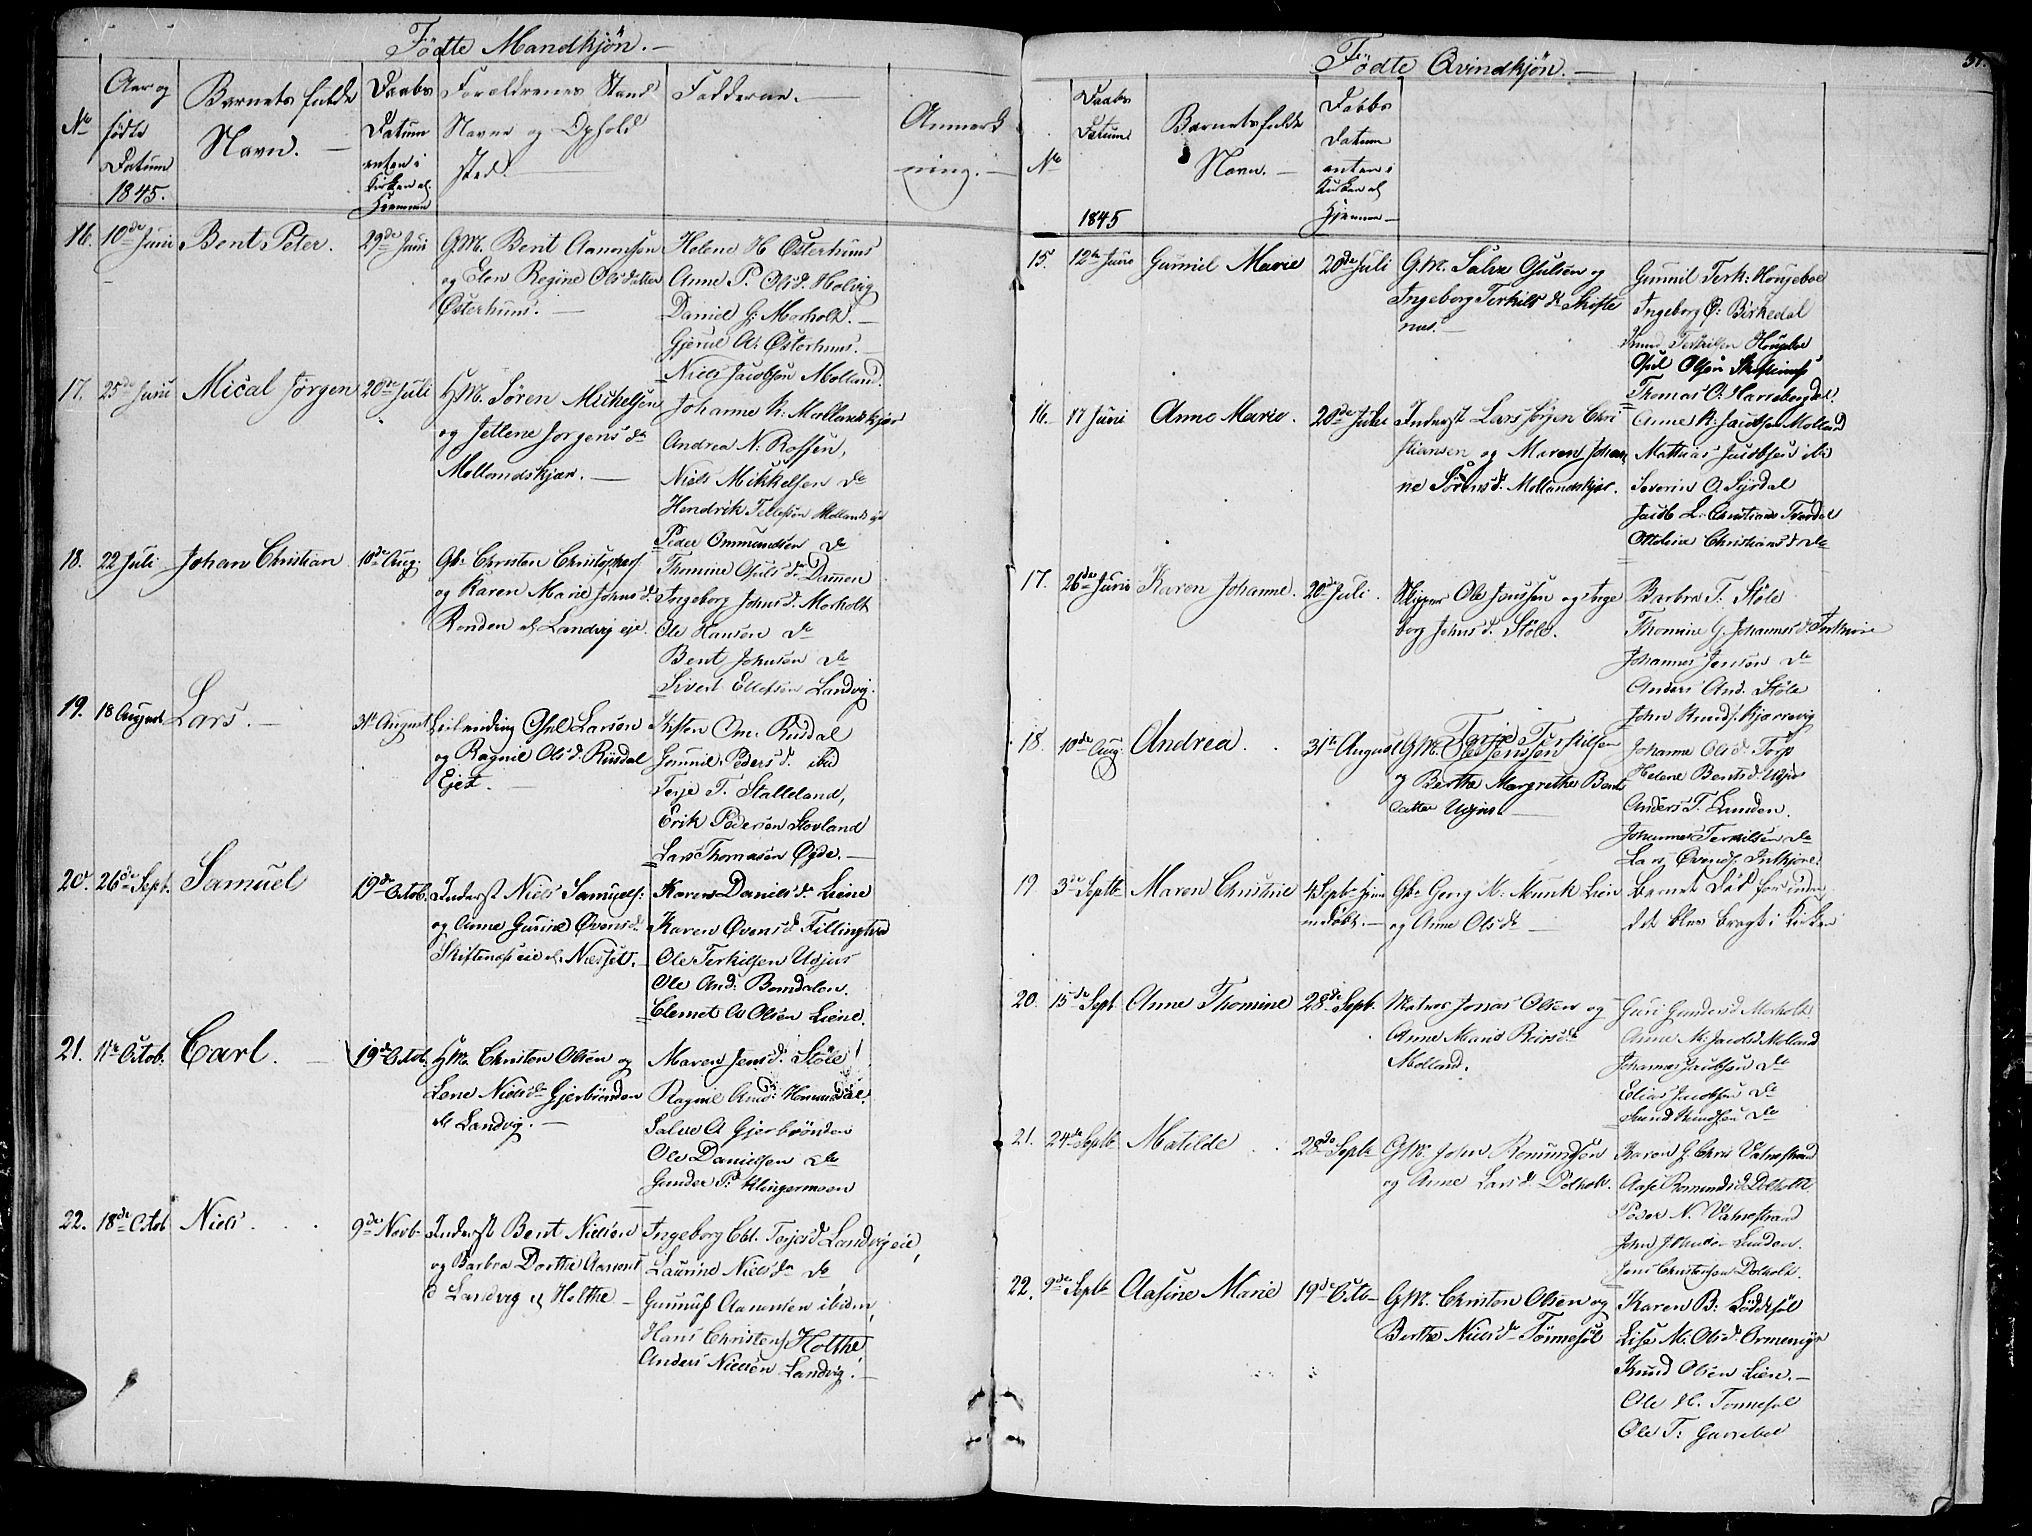 Födte Mandkjön.
No
Aar og
födte
Datum
1845.
Barnets fulde
Navn.
Daabs
Datum
enten i
Kirken el.
Hjemme
Foraldrenes Stand
Navne og Ophold
sted.
Fadderne.
Anmærk
ning.
16. 10de Juni Bent Peter. 29de Juni
G.M. Bent Aanonsen
og Elen Regine Olsdatter
Østerhuus.
Helene H Østerhuus
Anne P. Olsd. Holvig
Daniel G. Morholt.
Gjerul A. Østerhuus.
Niels Jacobsön Molland.
17. 25de Juni Mical Jörgen 20de Juli
H.M. Sören Mickelsen
og Jellene Jorgensda
Mollandskjær.
Johanne K. Mollandskjær
Andrea N. Rossen,
Niels Mikkelsen do
Hendrik Tellefsen Mollands eje
Peder Ommundsen do
18. 22 Juli Johan Christian 10de Aug.
Gb. Christen Christophers.
og Karen Marie Johnsd.
Ronden af Landvig eje.
Thomine Osulsd. Dammen
Ingeborg Johnsd. Morholt
Ole Hansen do
Bent Johnsen do
Sivert Ellefsen Landvig.
19. 18 August Lars. 31te August
Leilending Osul Larsen
og Ragnil Olsd. Riisdal
Ejet.
Kisten Om. Riisdal
Gunnil Pedersd. ibid
Terje T. Stalleland,
Erik Pedersen Stovland
Lars Thomasen Øgde.
20. 26de Sept. Samuel 19de Octob.
Inderst Niels Samuels:
og Anne Gurine Øvensd.
Skiftenæs eie el. Næsset.
Karen Danielsd. Liene
Karen Øvensd. Fillingtved
Ole Terkilsen Ugjus
Ole And. Bomdalen.
Clemet A Olsen Liene.
21. 11te Octob. Carl. 19de Octob.
H.M. Christen Olsen og
Lene Nielsda Gjerbrönden
af Landvig.
Maren Jensd. Stöle
Ragnil And: Hommedal.
Salve A Gjerbrönden
Ole Danielsen do
Gunder P. Klingermoen
22. 18de Octob Niels. 9de Novb.
Inderst Bent Nielsen
og Barbra Dorthe Aanons
d Landvig af Holthe
Ingeborg Cbl. Torjesd. Landvig eie,
Laurine Nielsda do
Gunnuf Aanonsen ibidem,
Hans Christens. Holthe
Anders Nielsen Landvig.
Födte Qvindkjön.
51.
No
Daabs
Datum
1845
Barnets fulde
Navn.
Dabbs
Datum
enten i
Kirken el
Hjemme
15. 12te Juni Gunnil Marie 20de Juli
G.M. Salve Osulsen og
Ingeborg Terkilsda Skifte
nes.
Gunnil Terk: Hougeboe
Ingeborg O: Birkedal
Knud Terkilsen Hougeboe
Osul Olsen Skiftenæs
Thomas O: Harrebergdal.
16. 17 Juni Anne Marie. 20de Julie
Inderst Lars Jörgen Chri
stiansen og Maren Johan
ne Sörensd. Mollandskjær.
Anne K. Jacobsen Molland
Mathias Jacobsen ibid
Severin O. Syrdal
Jacob L. Christians Tvedal
Ottelina Christiansd. do
17. 26de Juni Karen Johanne. 20de Juli.
Skipper Ole Jenssen og Inge
borg Johnsd. Stöle.
Barbra T. Stöle
Thomine G. Johannesd. Inkjöre
Johannes Jensen do
Anders And. Stöle
John Knuds. Kjærevig
18. 10de Aug. Andrea. 31te August
Terje Terkilsen
G.M. Ole Jenssen
og Berthe Margrethe Bents
datter Ugjus
Johanne Olsd. Torp
Helene Bentsd. Ugjus
Anders T. Lunden.
Johannes Terkilsen do
Lars Øvends. Inkjöre.
19. 3die Septb Maren Christine 4 Septb hjem
medöbt.
Gb. Georg N. Munk Lien
og Anne Olsda
Barnet död for inden
det blev bragt i Kirken
20. 15de Sept Anne Thomine 28de Sept.
Matros Jonas Olsen og
Anne Marie Reiersda
Molland.
Guri Gundersd. Morholt
Anne M. Jacobsd. Molland
Johannes Jacobsen do
Elias Jacobsen do
Svend Knudsen do
21. 24de Septb Matilde 28de Septb
G.M. John Romundsen
og Anne Larsd. Dolholt.
Karen G. Chris Vahnestrand
Aase Romundsd. Dolholt
Peder N. Vahnestrand
John Johnsen Lunden.
Jens Christensen Dolholt.
22. 9de Septb Aasine Marie 19de Octb
G.M. Christen Olsen og
Berthe Nielsda Tönnesöl
Karen B: Löddesöl
Lise M. Olsd. Ormenige
Knud Olsen Lien.
Ole H. Tonnesöl
Ole T: Gurebo